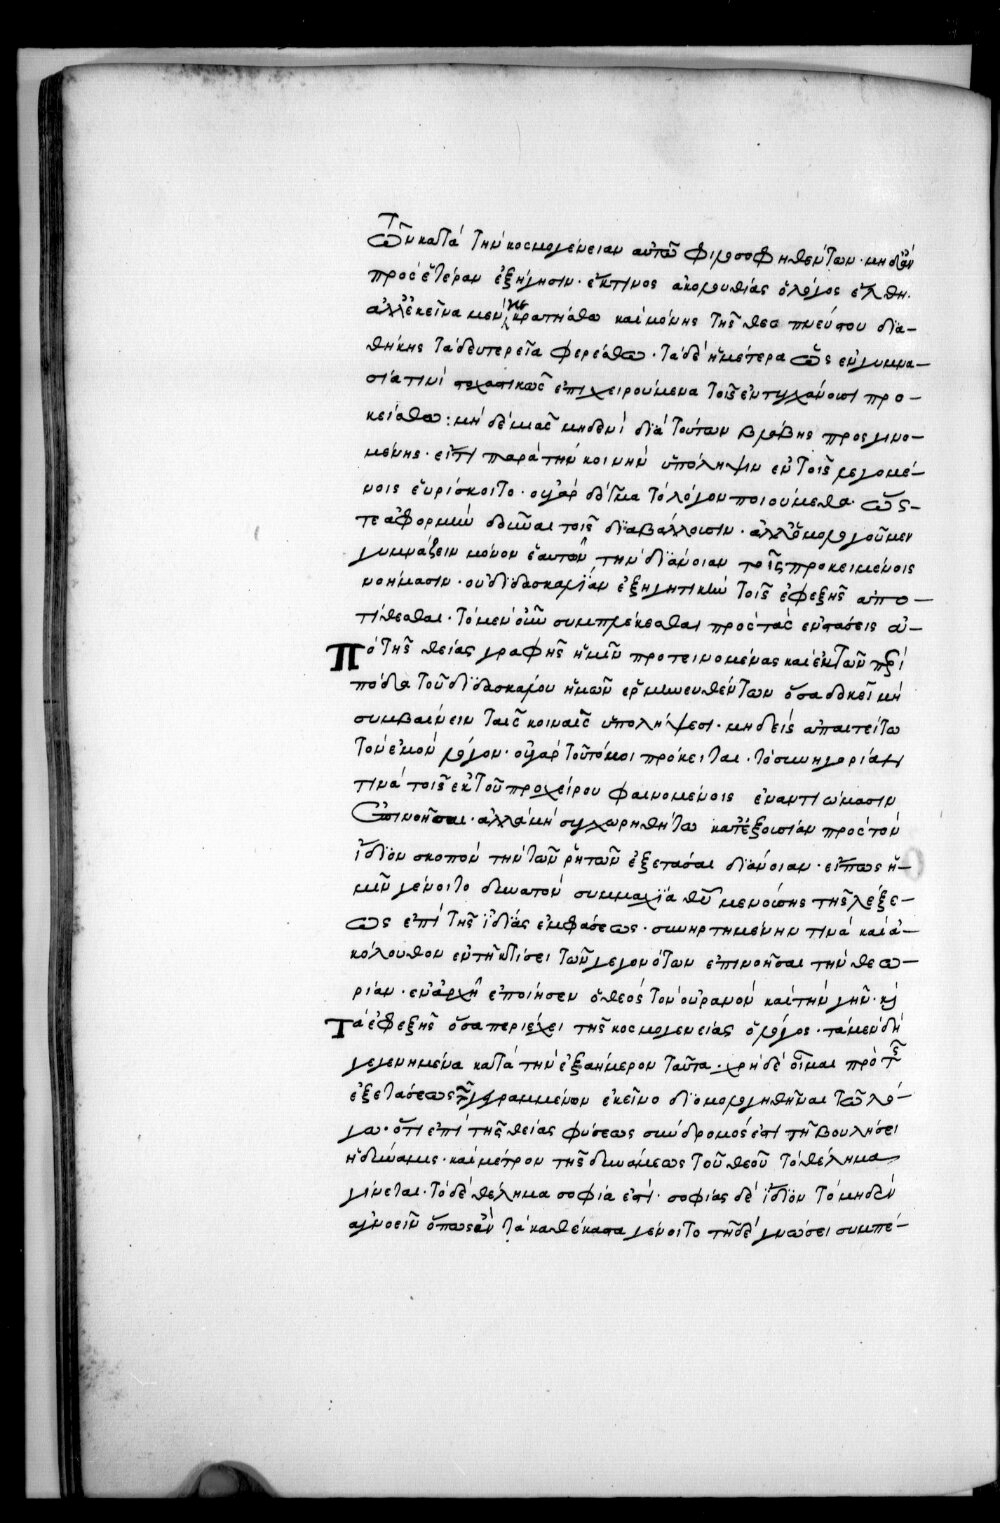 Τῶν κατὰ τὴν κοσμογένειαν αὐτῶ φιλοσοφηθέντων· μηδὲν
πρὸς ἑτέραν ἐξήγησιν· ἔκτινος ἀκολουθίας ὁ λόγος ἔλθῃ.
ἀλλ' ἐκεῖνα μὲν κρατήσθω καὶ μόνης τῆς θεοπνεύστου δια-
θήκης τὰ δευτερεῖα φερέσθω· τὰ δὲ ἡμέτερα ὡς ἐν γυμνα-
σία τινὶ σχαστικῶς ἐπιχειρούμενα τοῖς ἐντυγχάνουσι προ-
κείσθω: μὴ δεμιᾶς μηδενὶ διὰ τούτων βλάβης προσγινο-
μένης· εἴτι παρὰ τὴν κοινὴν ὑπόληψιν ἐν τοῖς λεγομέ-
νοις εὑρίσκοιτο· οὐ γὰρ δόγμα τὸ λόγον ποιούμεθα· ὥς-
τε ἀφορμὴν δοῦναι τοῖς διαβάλλουσιν· ἀλλ' ὁμολογοῦμεν
γυμνάζειν μόνον ἑαυτῶν τὴν διάνοιαν τοῖς προκειμένοις
νοήμασιν· οὐ διδασκαλίαν ἐξηγητικὴν τοῖς ἐφεξῆς ἀπο-
τίθεσθαι· τὸ μὲν οὖν συμπλέκεσθαι πρὸς τὰς ἐνστάσεις ἀ-
πὸ τῆς θείας γραφῆς ἡμῖν προτεινομένας καὶ ἐκ τῶν πρι
πόδα τοῦ διδασκάλου ἡμῶν ἑρμηνευθέντων ὅσα δοκεῖ μὴ
συμβαίνειν ταῖς κοιναῖς ὑπολήψεσι· μηδεὶς ἀπαιτείτω
τὸν ἐμὸν λόγον· οὐ γὰρ τοῦτό μοι πρόκειται· τὸ συνηγορίαν
τινὰ τοῖς ἐκ τοῦ προχείρου φαινομένοις ἐναντιώμασιν
ἐπινοῆσαι· ἀλλά μὴ συγχωρηθήτω κατ' ἐξουσίαν πρὸς τὸν
ἴδιον σκοπὸν τὴν τῶν ῥητῶν ἐξετάσαι διάνοιαν· εἴπως ἡ-
μῖν γένοιτο δυνατὸν συμμαχία θῦ μενούσης τῆς λέξε-
ως ἐπὶ τῆς ἰδίας ἐμφάσεως· συνηρτημένην τινὰ καὶ ἀ-
κόλουθον ἐν τῇ κτίσει τῶν γεγονότων ἐπινοῆσαι τὴν θεω-
ρίαν· ἐν ἀρχῇ ἐποίησεν ὁ θεὸς τὸν οὐρανὸν καὶ τὴν γῆν· κὶ
τὰ ἐφεξῆς ὅσα περιέχει τῆς κοσμογενείας ὁ λόγος· τὰ μὲν δὴ
γεγενημένα κατὰ τὴν ἑξαήμερον ταῦτα· χρὴ δὲ οἶμαι πρὸ τῆς
ἐξετάσεως τῶν γεγραμμένων ἐκεῖνο διομολογηθῆναι τῶ λό-
γω· ὅτι ἐπὶ τῆς θείας φύσεως σύνδρομός ἐστι τῇ βουλήσει
ἡ δύναμις· καὶ μέτρον τῆς δυνάμεως τοῦ θεοῦ τὸ θέλημα
γίνεται· τὸ δὲ θέλημα σοφία ἐστί· σοφίας δὲ ἴδιον τὸ μηδὲν
ἀγνοεῖν ὅπως ἂν τὰ καθέκαστα γένοιτο τῇ δὲ γνώσει συμπέ-